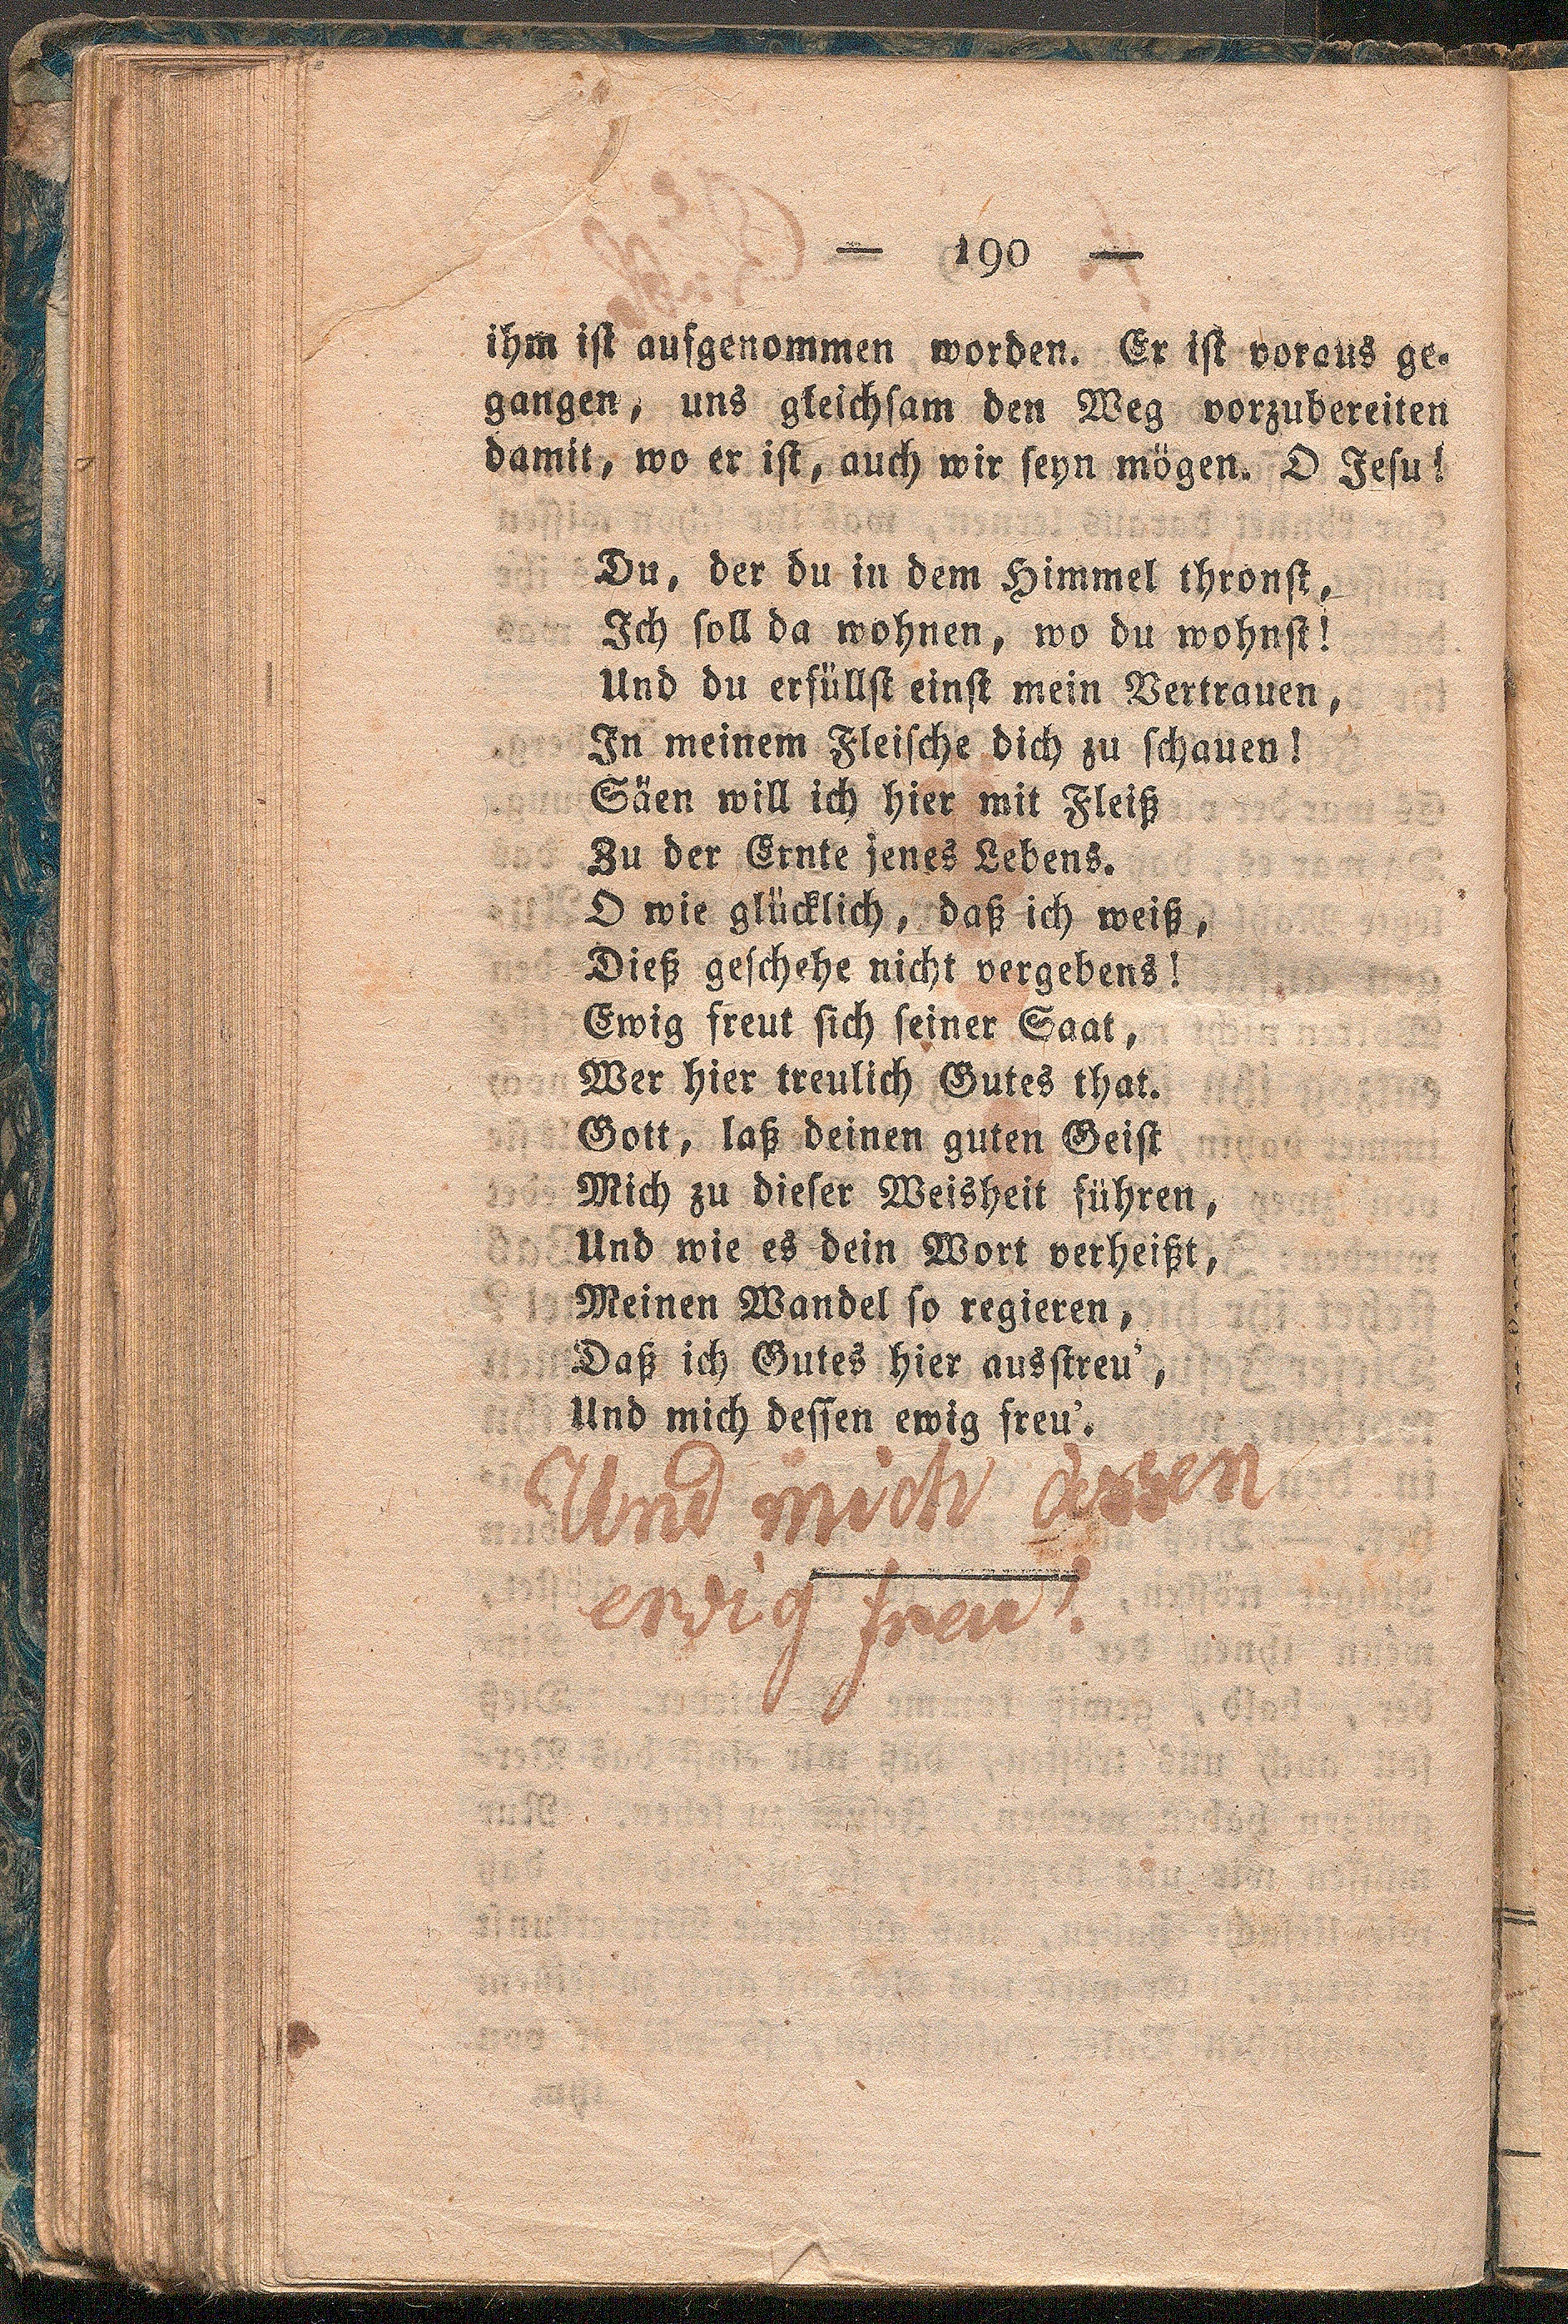 — 190 —
ihm ist aufgenommen worden. Er ist voraus ge-
gangen, uns gleichsam den Weg vorzubereiten
damit, wo er ist, auch wir seyn mögen. O Jesu!
Du, der du in dem Himmel thronst,
Ich soll da wohnen, wo du wohnst!
Und du erfüllst einst mein Vertrauen,
In meinem Fleische dich zu schauen!
Säen will ich hier mit Fleiß
Zu der Ernte jenes Lebens.
O wie glücklich, daß ich weiß,
Dieß geschehe nicht vergebens!
Ewig freut sich seiner Saat,
Wer hier treulich Gutes that.
Gott, laß deinen guten Geist
Mich zu dieser Weisheit führen,
Und wie es dein Wort verheißt,
Meinen Wandel so regieren,
Daß ich Gutes hier ausstreu',
Und mich dessen ewig freu'.
Und mich dessen
ewig freu'.